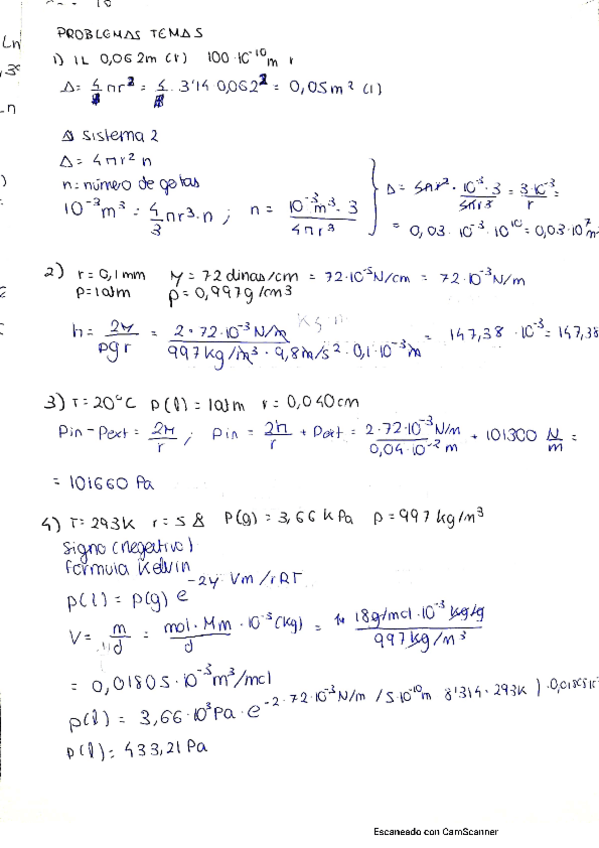 PROBLEMAS TEMA 5
1) 1L 0,062m (r) 100·10⁻¹⁰m r
Δ = 4πr² = 4 · 3'14 0,062² = 0,05m² (1)
Δ sistema 2
Δ = 4πr² n
n = número de gotas
10⁻³m³ = 4/3 πr³·n ; n = 10⁻³m³·3 / 4πr³
Δ = 4πr² · 10⁻³·3 / 4πr³ = 3·10⁻³ / r =
= 0,03·10⁻³·10¹⁰ = 0,03·10⁷m
2) r = 0,1mm γ = 72 dinas/cm = 72·10⁻⁵N/cm = 72·10⁻³N/m
P = 1atm ρ = 0,997g/cm³
h = 2γ / ρgr = 2·72·10⁻³N/m / 997kg/m³ · 9,8m/s² · 0,1·10⁻³m = 147,38·10⁻³ = 147,38
3) T = 20°C P(l) = 1atm r = 0,040cm
Pin - Pext = 2γ / r ; Pin = 2γ / r + Pext = 2·72·10⁻³N/m / 0,04·10⁻²m + 101300 N/m =
= 101660 Pa
4) T = 293K r = 5 Å P(g) = 3,66 kPa ρ = 997kg/m³
signo (negativo)
fórmula Kelvin
p(l) = p(g) e^-2γ Vm / rRT
V = m/d = mol·Mm·10⁻³(kg) / d = 18g/mol·10⁻³ kg/g / 997kg/m³
= 0,01805·10⁻³m³/mol
p(l) = 3,66·10³Pa·e^-2·72·10⁻³N/m / 5·10⁻¹⁰m 8'314·293K)·0,01805
p(l) = 433,21Pa
Escaneado con CamScanner